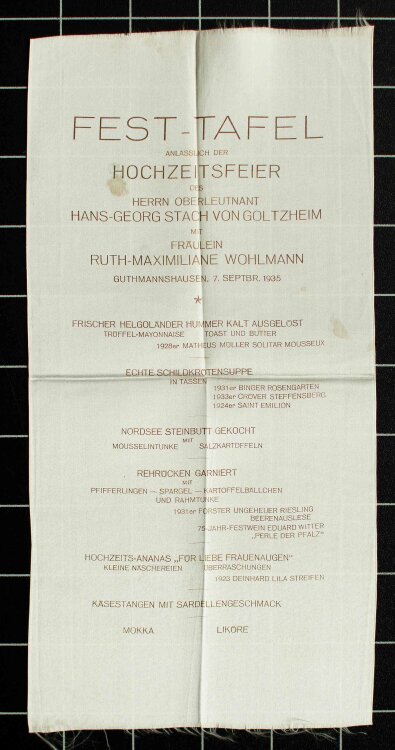 FEST-TAFEL
ANLÄSSLICH DER
HOCHZEITSFEIER
DES
HERRN OBERLEUTNANT
HANS-GEORG STACH VON GOLTZHEIM
MIT
FRÄULEIN
RUTH-MAXIMILIANE WOHLMANN
GUTHMANNSHAUSEN, 7. SEPTBR. 1935
*
FRISCHER HELGOLÄNDER HUMMER KALT AUSGELÖST
TRÜFFEL-MAYONNAISE TOAST UND BUTTER
1928er MATHEUS MÜLLER SOLITÄR MOUSSEUX
ECHTE SCHILDKRÖTENSUPPE
IN TASSEN
1931er BINGER ROSENGARTEN
1933er CRÖVER STEFFENSBERG
1924er SAINT EMILION
NORDSEE STEINBUTT GEKOCHT
MIT
MOUSSELINTUNKE SALZKARTOFFELN
REHRÜCKEN GARNIERT
MIT
PFIFFERLINGEN — SPARGEL — KARTOFFELBÄLLCHEN
UND RAHMTUNKE
1931er FORSTER UNGEHEUER RIESLING
BEERENAUSLESE
75-JAHR-FESTWEIN EDUARD WITTER
„PERLE DER PFALZ"
HOCHZEITS-ANANAS „FÜR LIEBE FRAUENAUGEN"
KLEINE NÄSCHEREIEN ÜBERRASCHUNGEN
1923 DEINHARD LILA STREIFEN
KÄSESTANGEN MIT SARDELLENGESCHMACK
MOKKA LIKÖRE